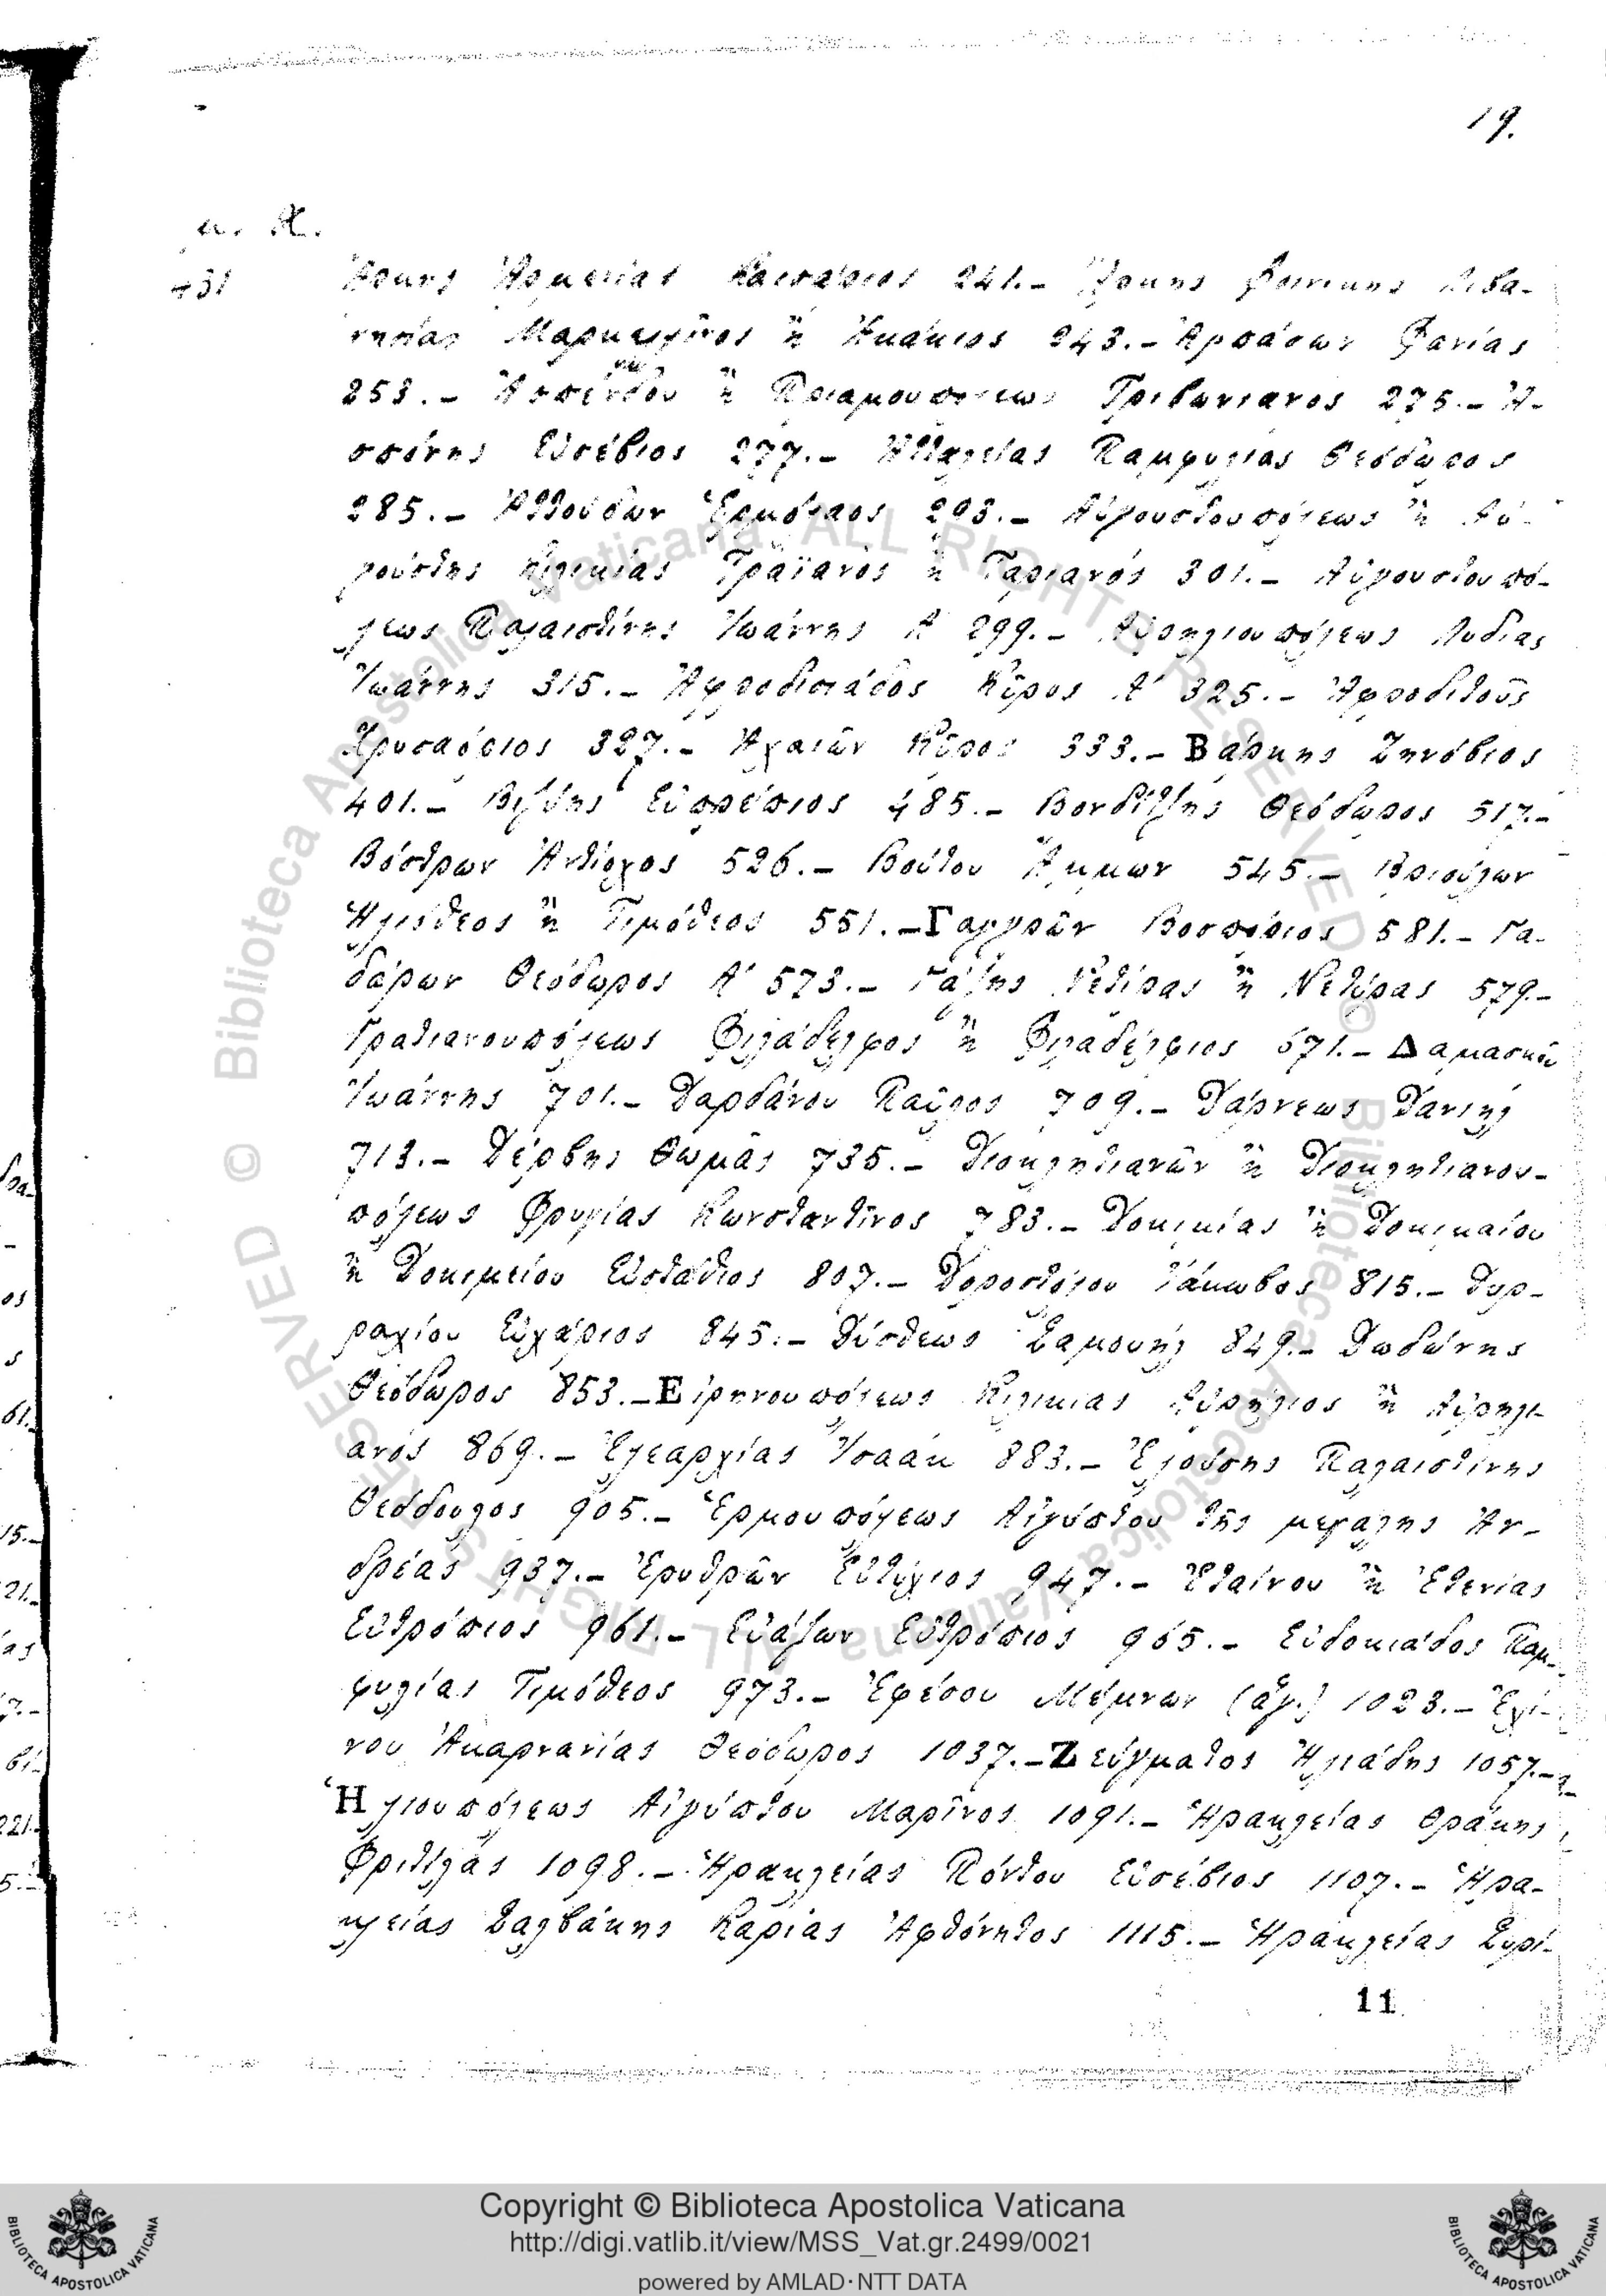 19.
μ. Χ.
431 Ἄρκης Ἀρμενίας Καισάριος 241.- Ἄρκης Φοινίκης Λιβα-
νησίας Μαρκελλῖνος ἢ Ἀκάκιος 243.- Ἁρπάσων Φανίας
253.- Ἀσπένδου ἢ Πριαμουπόλεως Τριβωνιανὸς 275.- Ἀ-
σσώνης Εὐσέβιος 277.- Ἀτταλείας Παμφυλίας Θεόδωρος
285.- Ἀττούδων Ἑρμόλαος 293.- Αὐγουστουπόλεως ἢ Αὐ-
γούστης Κιλικίας Τραϊανὸς ἢ Ταριανός 301.- Αὐγουστουπό-
λεως Παλαιστίνης Ἰωάννης Α' 299.- Αὐρηλιουπόλεως Λυδίας
Ἰωάννης 315.- Ἀφροδισιάδος Κῦρος Α' 325.- Ἀφροδιτοῦς
Χρυσαόριος 327.- Ἀχαιῶν Κῦρος 333.- Βάρκης Ζηνόβιος
401.- Βιζύης Εὐπρέπιος 485.- Βονδίτζης Θεόδωρος 517.-
Βόστρων Ἀντίοχος 526.- Βούτου Ἄμμων 545.- Βριούλων
Ἡλιόθεος ἢ Τιμόθεος 551.- Γαγγρῶν Βοσπόριος 581.- Γα-
δάρων Θεόδωρος Α' 573.- Γάζης Νετίρας ἢ Νετύρας 579.-
Γρατιανουπόλεως Φιλάδελφος ἢ Φιλαδέλφιος 671.- Δαμασκοῦ
Ἰωάννης 701.- Δαρδάνου Παῦλος 709.- Δάρνεως Δανιήλ
713.- Δέρβης Θωμᾶς 735.- Διοκλητιανῶν ἢ Διοκλητιανου-
πόλεως Φρυγίας Κωνσταντῖνος 783.- Δοκιμίας ἢ Δοκιμαίου
ἢ Δοκιμείου Εὐστάθιος 807.- Δοροστόλου Ἰάκωβος 815.- Δυρ-
ραχίου Εὐχάριος 845.- Δύσθεως Σαμουήλ 849.- Δωδώνης
Θεόδωρος 853.- Εἰρηνουπόλεως Κιλικίας Αὐρήλιος ἢ Αὐρηλι-
ανός 869.- Ἐλεαρχίας Ἰσαάκ 883.- Ἐλούσης Παλαιστίνης
Θεόδουλος 905.- Ἑρμουπόλεως Αἰγύπτου τῆς μεγάλης Ἀν-
δρέας 937.- Ἐρυθρῶν Εὐτύχιος 947.- Ἐταίνου ἢ Ἐτενίας
Εὐτρόπιος 961.- Εὐάζων Εὐτρόπιος 965.- Εὐδοκιάδος Παμ-
φυλίας Τιμόθεος 973.- Ἐφέσου Μέμνων (ἅγ.) 1023.- Ἐχί-
νου Ἀκαρνανίας Θεόδωρος 1037.- Ζεύγματος Ἡλιάδης 1057.-
Ἡλιουπόλεως Αἰγύπτου Μαρῖνος 1091.- Ἡρακλείας Θρᾴκης
Φριτίλας 1098.- Ἡρακλείας Πόντου Εὐσέβιος 1107.- Ἡρα-
κλείας Σαλβάκης Καρίας Ἀφθόνητος 1115.- Ἡρακλείας Συρί-
11
Copyright © Biblioteca Apostolica Vaticana
http://digi.vatlib.it/view/MSS_Vat.gr.2499/0021
powered by AMLAD·NTT DATA